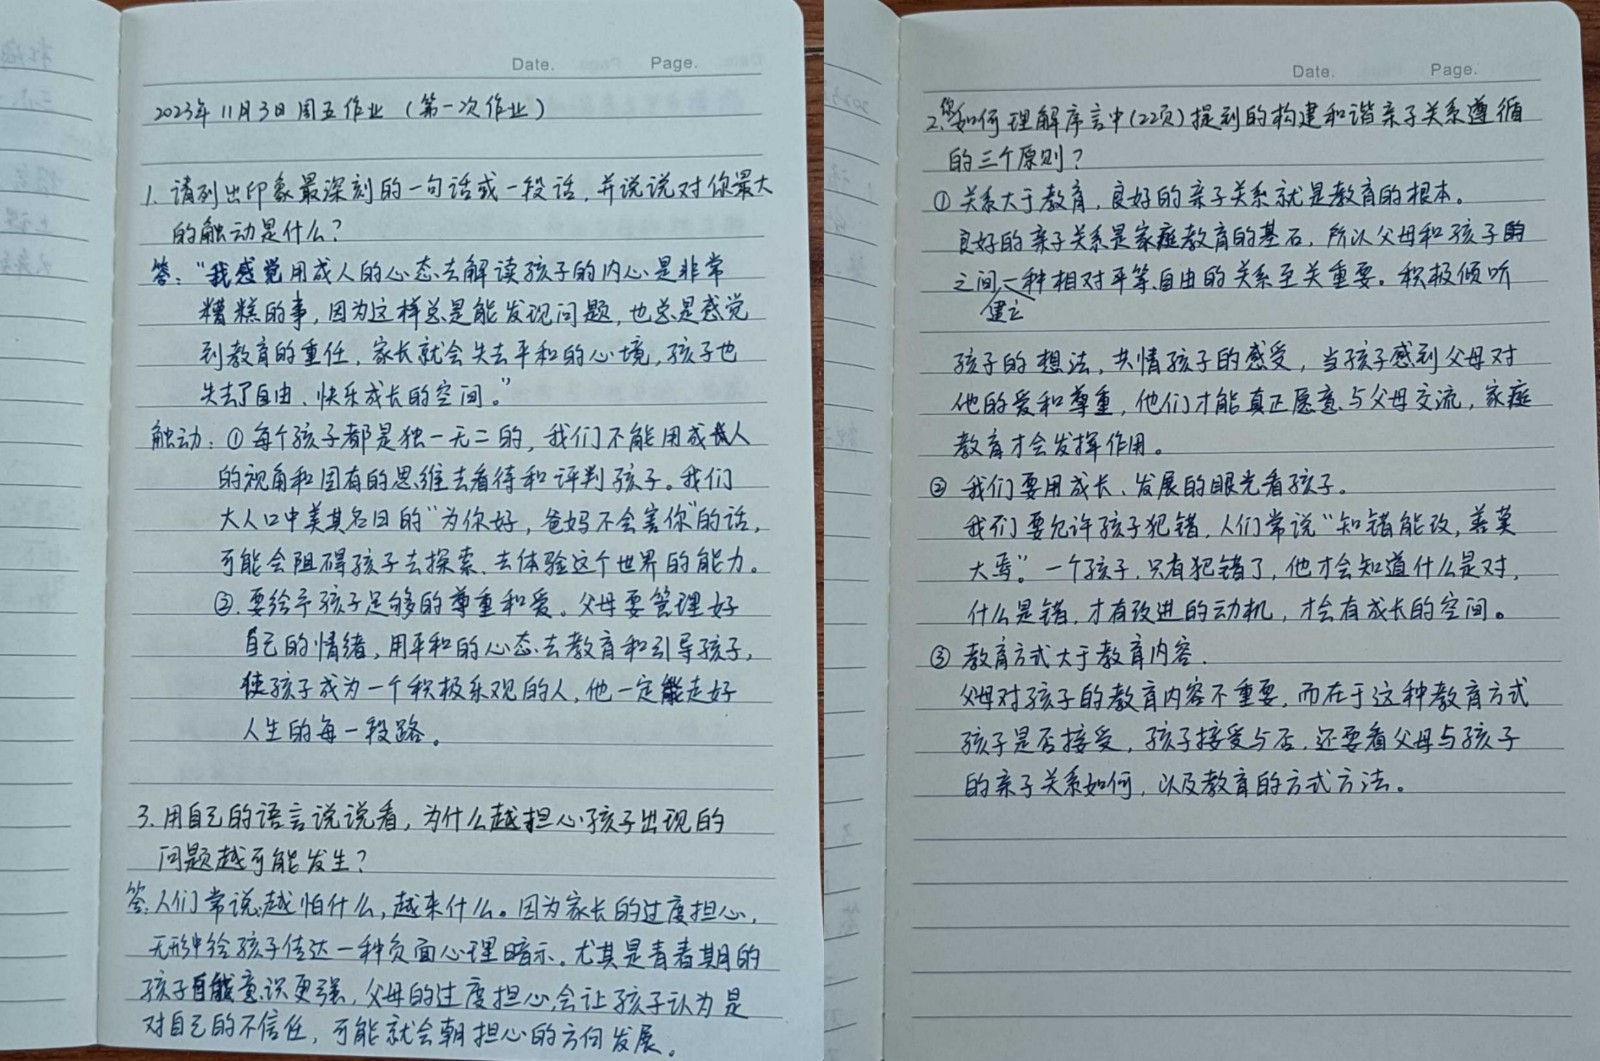 Date. Page.
2023年11月3日周五作业（第一次作业）
1. 请列出印象最深刻的一句话或一段话，并说说对你最大
的触动是什么？
答："我感觉用成人的心态去解读孩子的内心是非常
糟糕的事，因为这样总是能发现问题，也总是感觉
到教育的重任，家长就会失去平和的心境，孩子也
失去了自由、快乐成长的空间。"
触动：①每个孩子都是独一无二的，我们不能用成人
的视角和固有的思维去看待和评判孩子。我们
大人口中美其名曰的"为你好，爸妈不会害你"的话，
可能会阻碍孩子去探索、去体验这个世界的能力。
②.要给予孩子足够的尊重和爱。父母要管理好
自己的情绪，用平和的心态去教育和引导孩子，
使孩子成为一个积极乐观的人，他一定能走好
人生的每一段路。
3. 用自己的语言说说看，为什么越担心孩子出现的
问题越可能发生？
答：人们常说越怕什么，越来什么。因为家长的过度担心，
无形中给孩子传达一种负面心理暗示。尤其是青春期的
孩子自我意识更强，父母的过度担心会让孩子认为是
对自己的不信任，可能就会朝担心的方向发展。
Date. Page.
2.您如何理解序言中(22页)提到的构建和谐亲子关系遵循
的三个原则？
①关系大于教育，良好的亲子关系就是教育的根本。
良好的亲子关系是家庭教育的基石，所以父母和孩子
之间建立一种相对平等、自由的关系至关重要。积极倾听
孩子的想法，共情孩子的感受，当孩子感到父母对
他的爱和尊重，他们才能真正愿意与父母交流，家庭
教育才会发挥作用。
② 我们要用成长、发展的眼光看孩子。
我们要允许孩子犯错，人们常说"知错能改，善莫
大焉"。一个孩子，只有犯错了，他才会知道什么是对，
什么是错，才有改进的动机，才会有成长的空间。
③ 教育方式大于教育内容.
父母对孩子的教育内容不重要，而在于这种教育方式
孩子是否接受，孩子接受与否，还要看父母与孩子
的亲子关系如何，以及教育的方式方法。